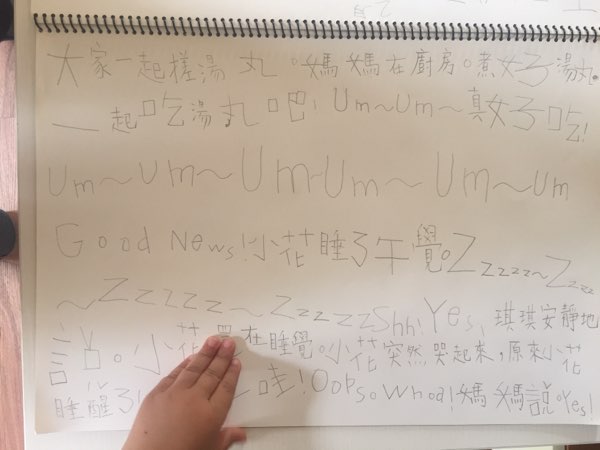 大家一起搓湯丸。媽媽在廚房。煮好湯丸。
一起吃湯丸吧！Um～Um～真好吃！
Um～Um～Um～Um～Um～Um
Good News!小花睡了午覺。Zzzzz～Zzzz
～Zzzzzz～ZzzzzzShh!Yes,琪琪安靜地
說。小花在睡覺。小花突然哭起來,原來小花
睡醒了哇!Oops。Whoa!媽媽說。Yes!